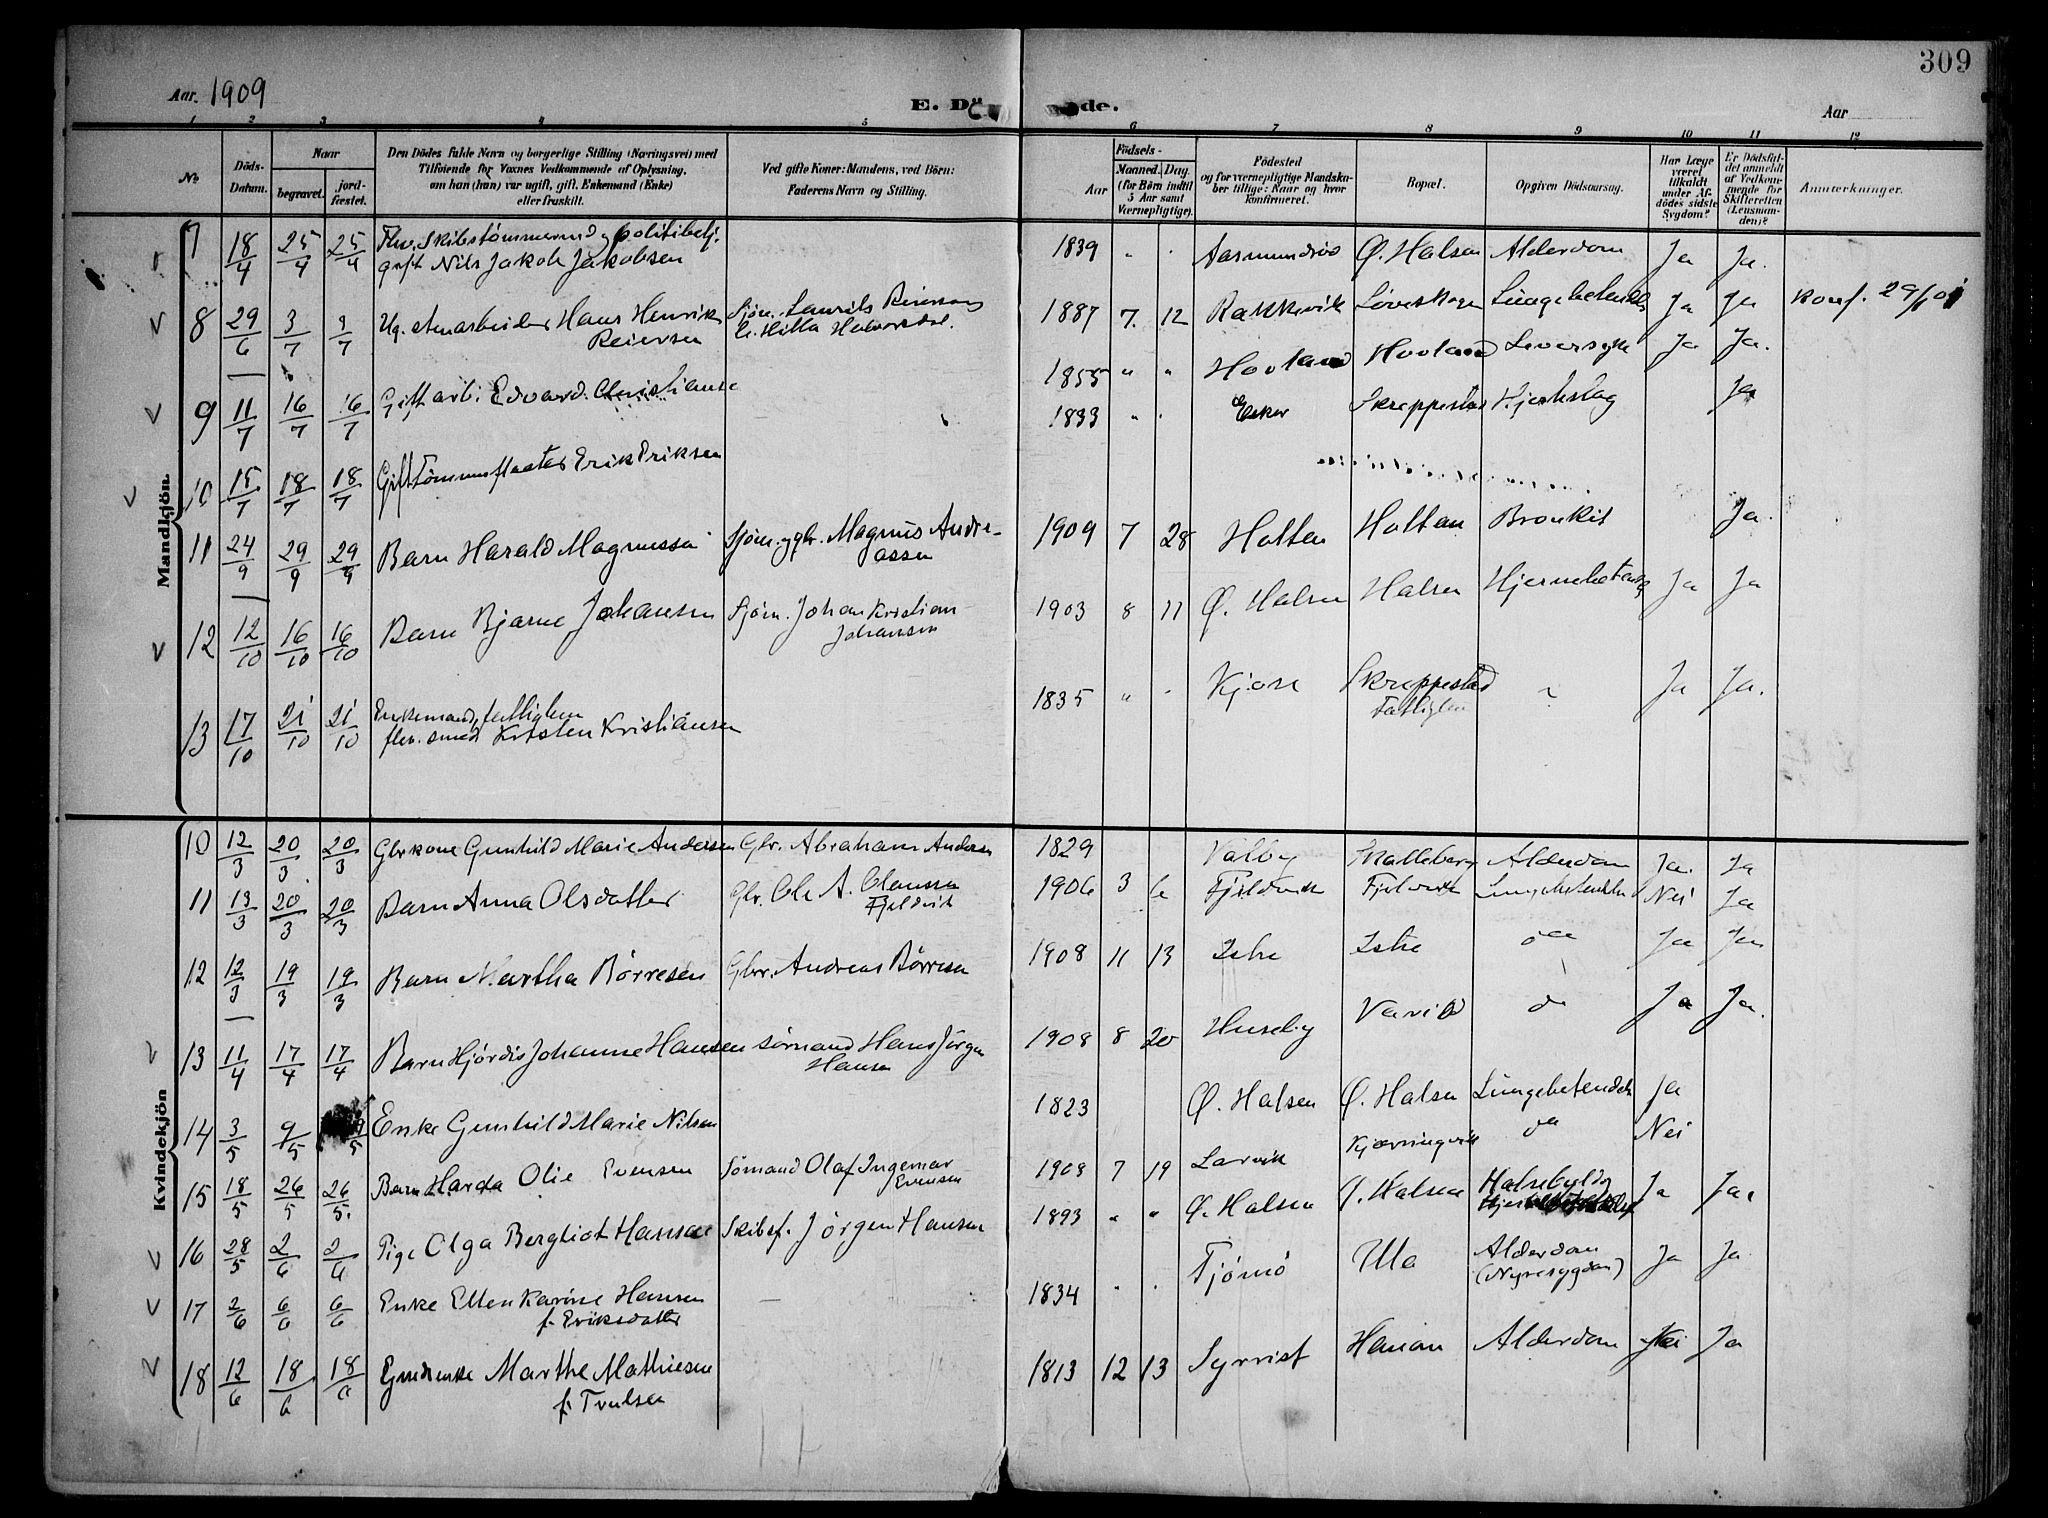 309
Aar. 1909
E. Dö de.
Aar
1 2 3 4 5 6 7 8 9 10 11 12
No
Döds-
Datum.
Naar
begravet.
jord-
fæstet.
Den Dödes fulde Navn og borgerlige Stilling (Næringsvei) med
Tilföiende for Voxnes Vedkommende af Oplysning,
om han (hun) var ugift, gift, Enkemand (Enke)
eller fraskilt.
Ved gifte Koner: Mandens, ved Börn:
Faderens Navn og Stilling.
Födsels-
Aar
Maaned. Dag.
(for Börn indtil
5 Aar samt
Værnepligtige).
Födested
og for værnepligtige Mandska-
ber tillige: Naar og hvor
konfirmeret.
Bopæl.
Opgiven Dödsaarsag.
Har Læge
været
tilkaldt
under Af-
dödes sidste
Sygdom?
Er Dödsfal-
det anmeldt
af Vedkom-
mende for
Skifteretten
(Lensman-
den)?
Anmerkninger.
Mandkjön.
7 18/4 25/4 25/4 Flv. Skibstømmermand og politibetj. 1839 " . Aasmundrød Ø. Halsen Alderdom Ja Ja.
gift Nils Jakob Jakobsen
8 29/6 3/7 3/7 Ug. Hans Henrik Sjøm. Laurits Reiersen 1887 7. 12 Rakkevik Løveskogen Lungebetendelse Ja Ja Konf. 29/
Reiersen
9 11/7 16/7 16/7 Gift arb. Edvard Christiansen 1855 " " Hovland Hovland Leversyke Ja Ja.
10 15/7 18/7 18/7 Gift Tømmerflaater Erik Eriksen 1833 " . Eker Skreppestad Hjerteslag Ja
11 24/9 29/9 29/9 Barn Harald Magnussen Sjøm. og gbr. Magnus Andre- 1909 7 28 Holten Holtan Bronkit Ja.
assen
12 12/10 16/10 16/10 Barn Bjarne Johansen Sjøm. Johan Kristian 1903 8 11 Ø. Halsen Halsen Hjernebetendelse Ja Ja
Johansen
13 17/10 21/10 21/10 Enkemand, fattiglem 1835 " . Kjose Skreppestad " Ja Ja.
flv. smed Kristen Kristiansen
Fattiglem
Kvindekjön
10 12/3 20/3 20/3 Gbrkone Gunhild Marie Andersen Gbr. Abraham Andersen 1829 Valby Skalleberg Alderdom Ja. Ja
11 13/3 20/3 20/3 Barn Anna Olsdatter Gbr. Ole A. Clausen 1906 3 6 Fjeldvik Fjeldvik Lungebetendelse Nei Ja
Fjeldvik
12 12/3 19/3 19/3 Barn Martha Børresen Gbr. Andreas Børresen 1908 11 13 Istre Istre do Ja Ja
13 11/4 17/4 17/4 Barn Hjørdis Johanne Hansen sømand Hans Jørgen 1908 8 20 Huseby Varild do Ja Ja.
Hansen
14 3/5 9/5 9/5 Enke Gunhild Marie Nilsen 1823 Ø. Halsen Ø. Halsen Lungebetendelse Ja
15 18/5 26/5 26/5. Barn Harda Olie Evensen Sømand Olaf Ingemar 1908 7 19 Larvik Kjærringvik do Nei
Evensen
16 28/5 2/6 2/6 Pige Olga Bergliot Hansen Skibsf. Jørgen Hansen 1893 " " Ø. Halsen Ø. Halsen Halsebyld og Ja Ja.
17 2/6 6/6 6/6 Enke Ellen Karine Hansen — 1834 . . Tjømø Ula Alderdom Ja Ja
f. Eriksdatter
(Nyresygdom)
18 12/6 18/6 18/6 Gmd.enke Marthe Mathiesen 1813 12 13 Syrrist Hanan Alderdom Nei Ja
f. Trulsen